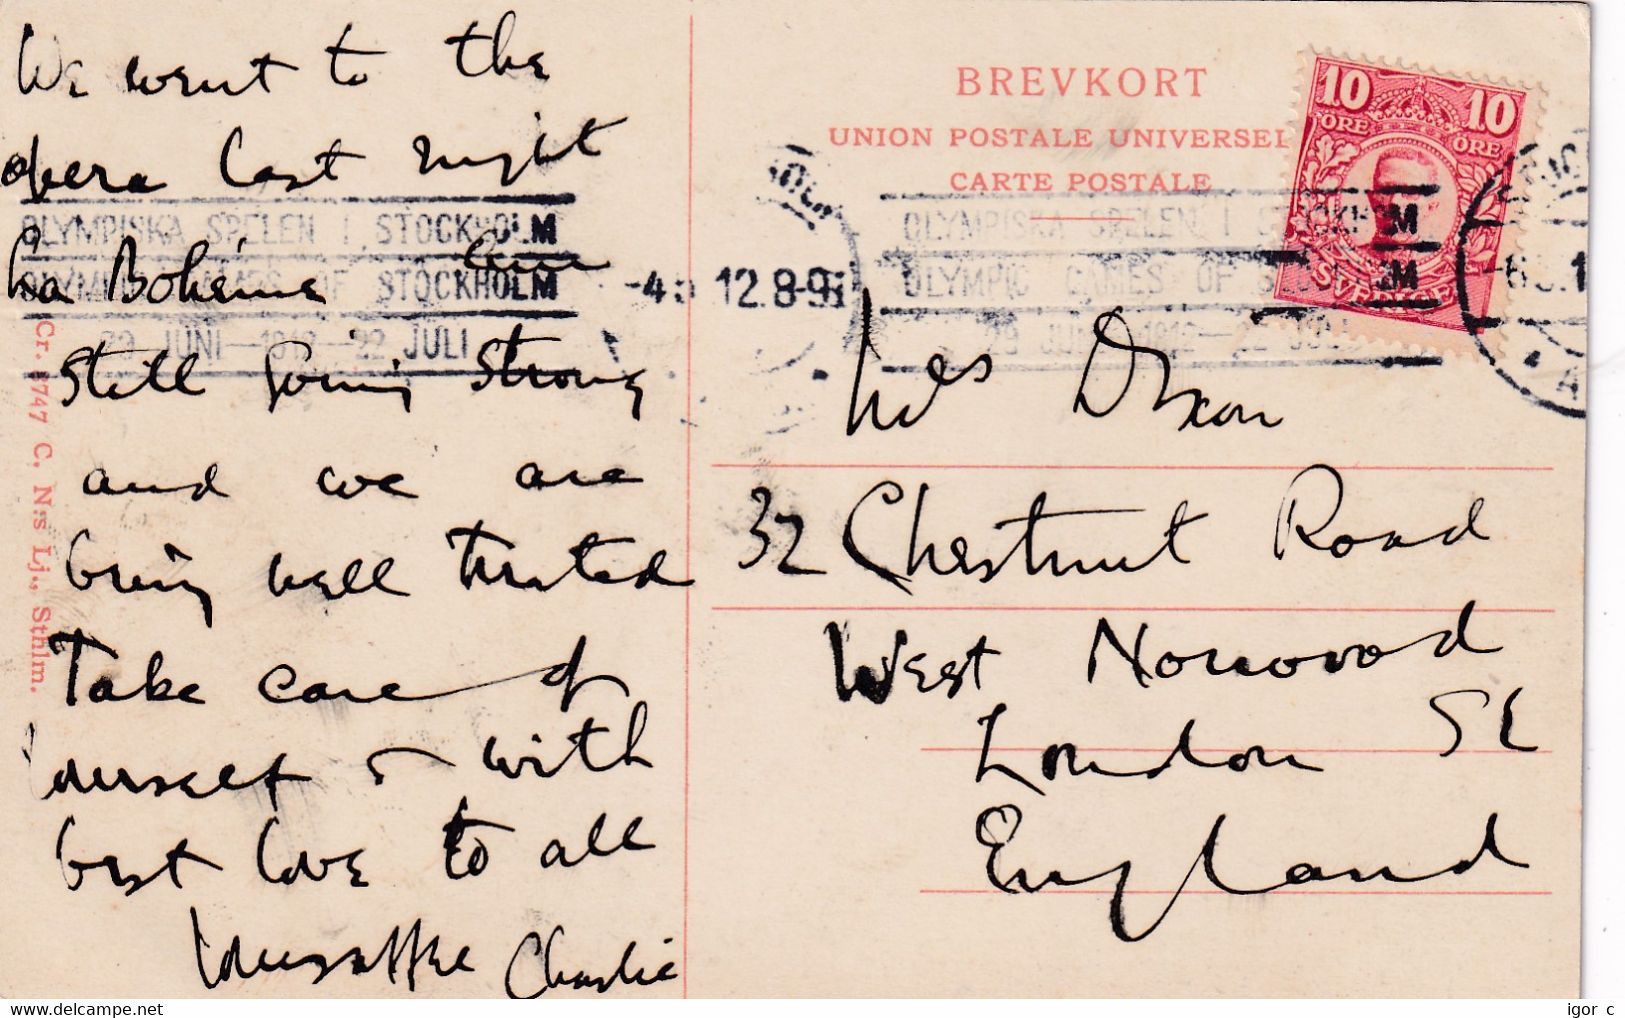 We went to the
opera last night
La Bohéme Am
still going strong
and we are
being well treated
Take care of
yourself & with
best love to all
Yours affec Charlie
BREVKORT
UNION POSTALE UNIVERSEL
CARTE POSTALE
10 ÖRE 10 ÖRE
SVERIGE
OLYMPISKA SPELEN I STOCKHOLM
OLYMPIC GAMES OF STOCKHOLM
29 JUNI-1912-22 JULI
-4 5 12.8-9
OLYMPISKA SPELEN I STOCKHOLM
OLYMPIC GAMES OF STOCKHOLM
29 JUNI 1912-22 JULI
Mrs Dixon
32 Chestnut Road
West Norwood
London SE
England
Cr. 8747 C. N:s Lj., Sthlm.
www.delcampe.net
igor c